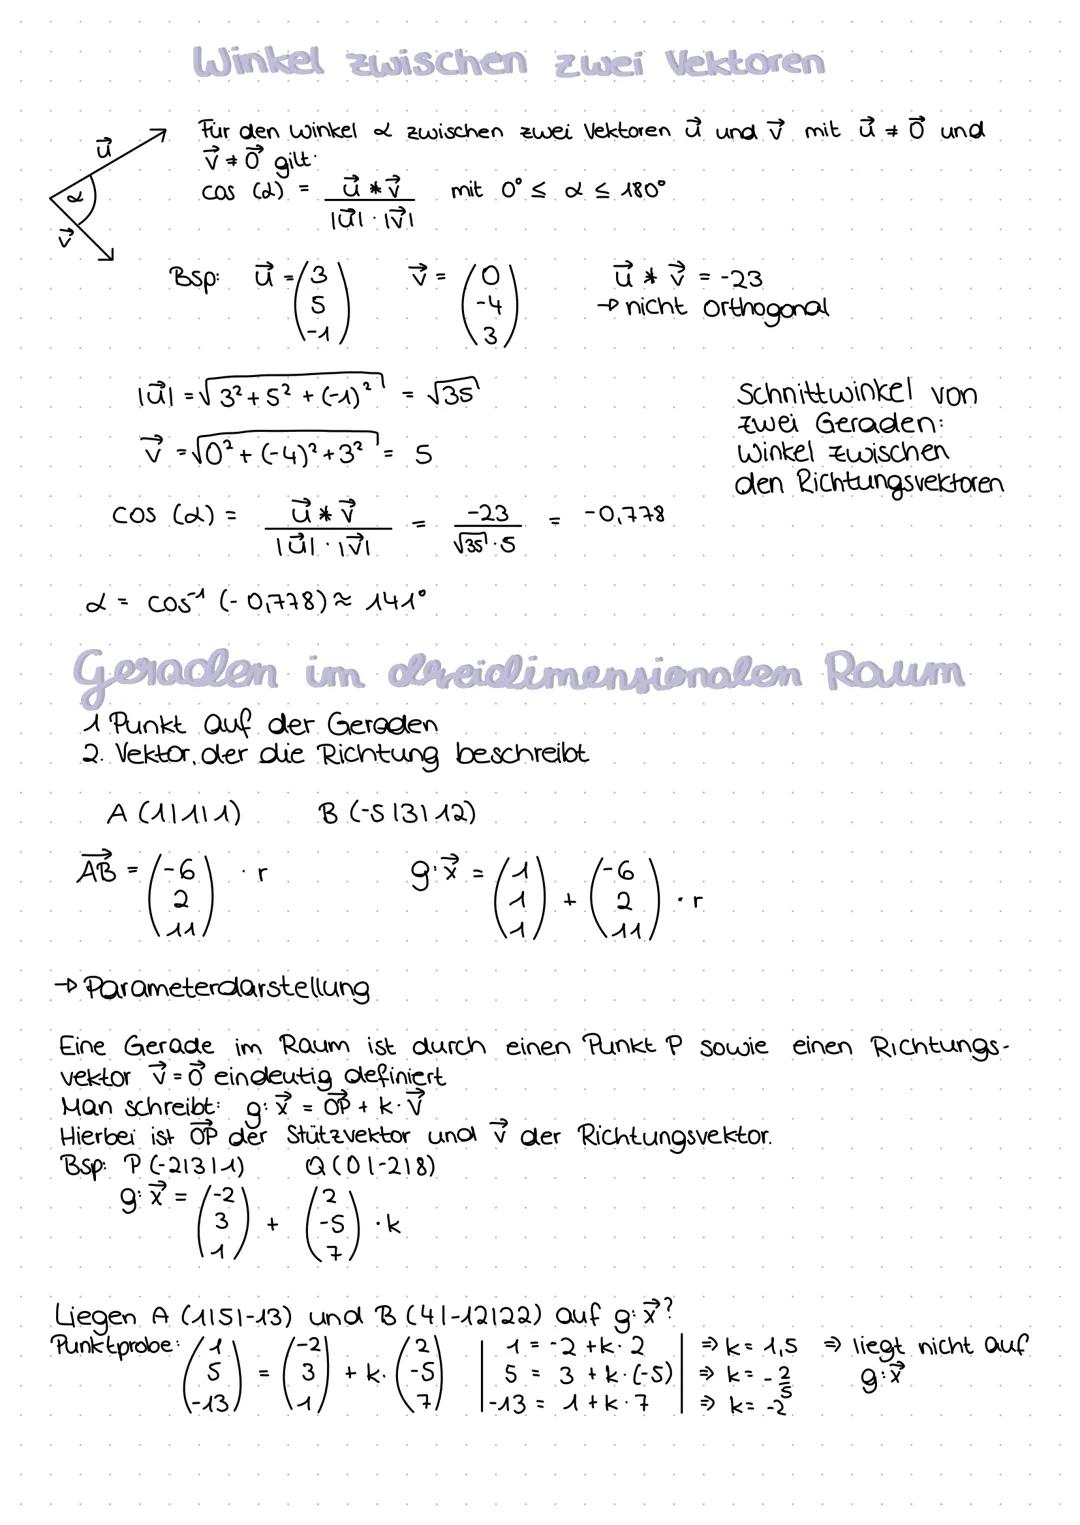 Winkel zwischen zwei Vektoren
Für den Winkel α zwischen zwei Vektoren u⃗ und v⃗ mit u⃗ ≠ 0⃗ und
v⃗ ≠ 0⃗ gilt:
cos (α) = (u⃗ * v⃗) / (|u⃗| · |v⃗|) mit 0° ≤ α ≤ 180°
u⃗
α
v⃗
Bsp: u⃗ = (3 5 -1) v⃗ = (0 -4 3) u⃗ * v⃗ = -23
→ nicht orthogonal
|u⃗| = √(3² + 5² + (-1)²) = √35
v⃗ = √(0² + (-4)² + 3²) = 5
Schnittwinkel von
zwei Geraden:
Winkel zwischen
den Richtungsvektoren
cos (α) = (u⃗ * v⃗) / (|u⃗| · |v⃗|) = -23 / (√35 · 5) = -0,778
α = cos⁻¹ (-0,778) ≈ 141°
Geraden im dreidimensionalen Raum
1 Punkt auf der Geraden
2. Vektor, der die Richtung beschreibt
A (1|1|1) B (-5|3|12)
AB⃗ = (-6 2 11) · r g: x⃗ = (1 1 1) + (-6 2 11) · r
→ Parameterdarstellung
Eine Gerade im Raum ist durch einen Punkt P sowie einen Richtungs-
vektor v⃗ = 0⃗ eindeutig definiert
Man schreibt: g: x⃗ = OP⃗ + k · v⃗
Hierbei ist OP⃗ der Stützvektor und v⃗ der Richtungsvektor.
Bsp: P (-2|3|1) Q (0|-2|8)
g: x⃗ = (-2 3 1) + (2 -5 7) · k
Liegen A (1|5|-13) und B (4|-12|22) auf g: x⃗?
Punktprobe: (1 5 -13) = (-2 3 1) + k · (2 -5 7)
| 1 = -2 + k · 2 | ⇒ k = 1,5 ⇒ liegt nicht auf
| 5 = 3 + k · (-5) | ⇒ k = -2/5 g: x⃗
| -13 = 1 + k · 7 | ⇒ k = -2